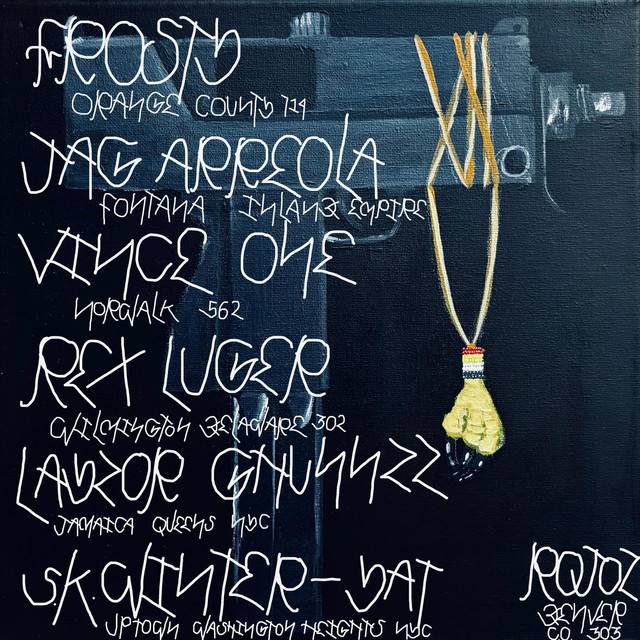 FROSTY
ORANGE COUNTY 714
JAG ARREOLA
FONTANA INLAND EMPIRE
VINCE ONE
NORWALK 562
REX LUGER
WILMINGTON DELAWARE 302
LAYZOR
JAMAICA QUEENS NYC
S.K.WINTER-YAT
UPTOWN WASHINGTON HEIGHTS NYC
DENVER
CO 303